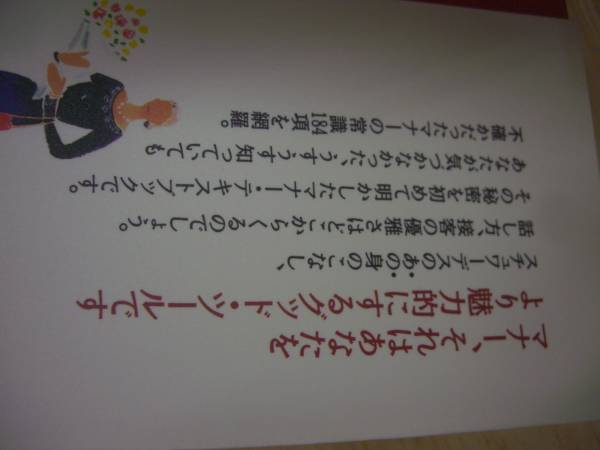 マナー、それはあなたを
より魅力的にするグッド・ツールです
スチュワーデスのあの身のこなし、
話し方、接客の優雅さはどこからくるのでしょう。
その秘密を初めて明かしたマナー・テキストブックです。
あなたが気づかなかった、うすうす知っていても
不確かだったマナーの常識184項を網羅。